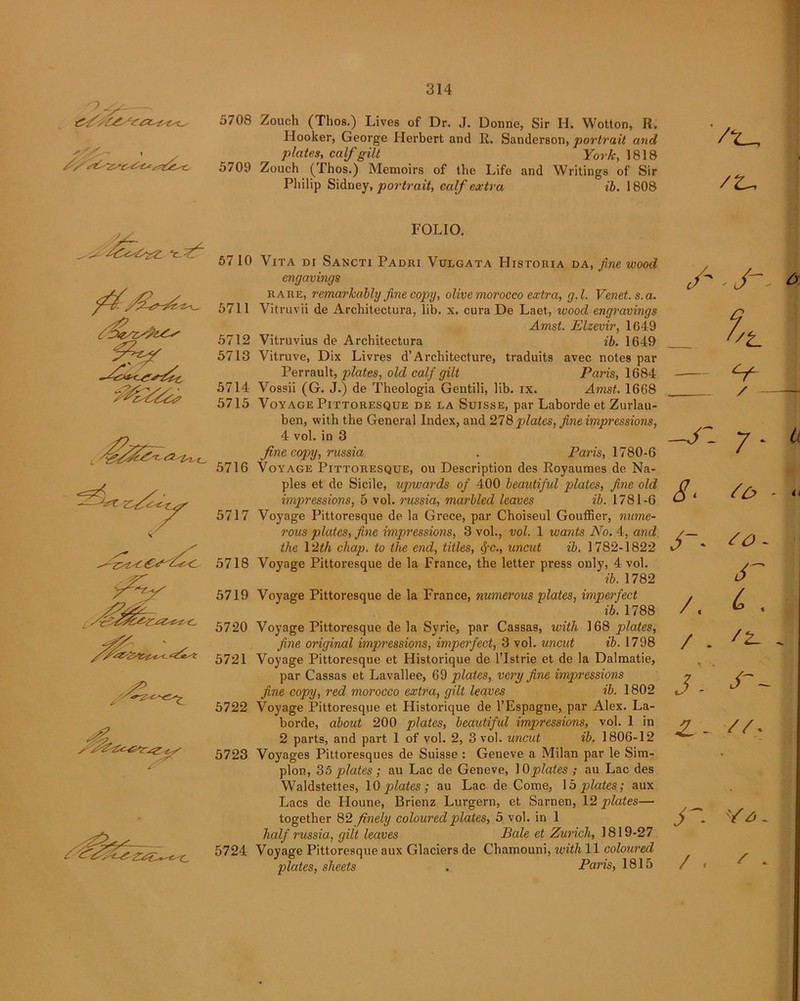 314
5708 Zouch (Thos.) Lives of Dr. J. Donne, Sir H. Wotton, R.
Hooker, George Herbert and R. Sanderson, portrait and
plates, calf gilt York, 1818
5709 Zouch (Thos.) Memoirs of the Life and Writings of Sir
Philip Sidney, portrait, calf extra ib. 1808
FOLIO.
5710 Vita di Sancti Padri Vulgata Historia da, fine wood
engavings
rare, remarkably fine copy, olive morocco extra, g.l. Venet. s.a.
5711 Vitruvii de Architectura, lib. x. cura De Laet, wood engravings
Amst. Elzevir, 1649
5712 Vitruvius de Architectura ib. 1649
5713 Vitruve, Dix Livres d'Architecture, traduits avec notes par
Perrault, plates, old calf gilt Paris, 1684
5714 Vossii (G. J.) de Theologia Gentili, lib. ix. Amst. 1668
5715 Voyage Pittoresque de la Suisse, par Laborde et Zurlau-
ben, with the General Index, and 278 plates, fine impressions,
4 vol. in 3
fine copy, russia . Paris, 1780-6
5716 Voyage Pittoresque, ou Description des Royaumes de Na-
ples et de Sicile, upwards of 400 beautiful plates, fine old
impressions, 5 vol. russia, marbled leaves ib. 1781-6
5717 Voyage Pittoresque de la Grece, par Choiseul Gouffier, nume-
rous plates, fine impressions, 3 vol., vol. 1 wants No. 4, and
the 12th chap. to the end, titles, &c., uncut ib. 1782-1822
5718 Voyage Pittoresque de la France, the letter press only, 4 vol.
ib. 1782
5719 Voyage Pittoresque de la France, numerous plates, imperfect
ib. 1788
5720 Voyage Pittoresque de la Syrie, par Cassas, with 168 plates,
fine original impressions, imperfect, 3 vol. uncut ib. 1798
5721 Voyage Pittoresque et Historique de l'Istrie et de la Dalmatie,
par Cassas et Lavallee, 69 plates, very fine impressions
fine copy, red morocco extra, gilt leaves ib. 1802
5722 Voyage Pittoresque et Historique de l'Espagne, par Alex. La-
borde, about 200 plates, beautiful impressions, vol. 1 in
2 parts, and part 1 of vol. 2, 3 vol. uncut ib. 1806-12
5723 Voyages Pittoresques de Suisse : Geneve a Milan par le Sim-
plon, 35 plates ; au Lac de Geneve, 10 plates ; au Lac des
Waldstettes, 10 plates ; au Lac de Come, 15 plates ; aux
Lacs de Houne, Brienz Lurgern, et Sarnen, 12 plates—
together 82 finely coloured plates, 5 vol. in 1
half russia, gilt leaves Bale et Zurich, 1819-27
5724 Voyage Pittoresque aux Glaciers de Chamouni, with 11 coloured
plates, sheets . Paris, 1815